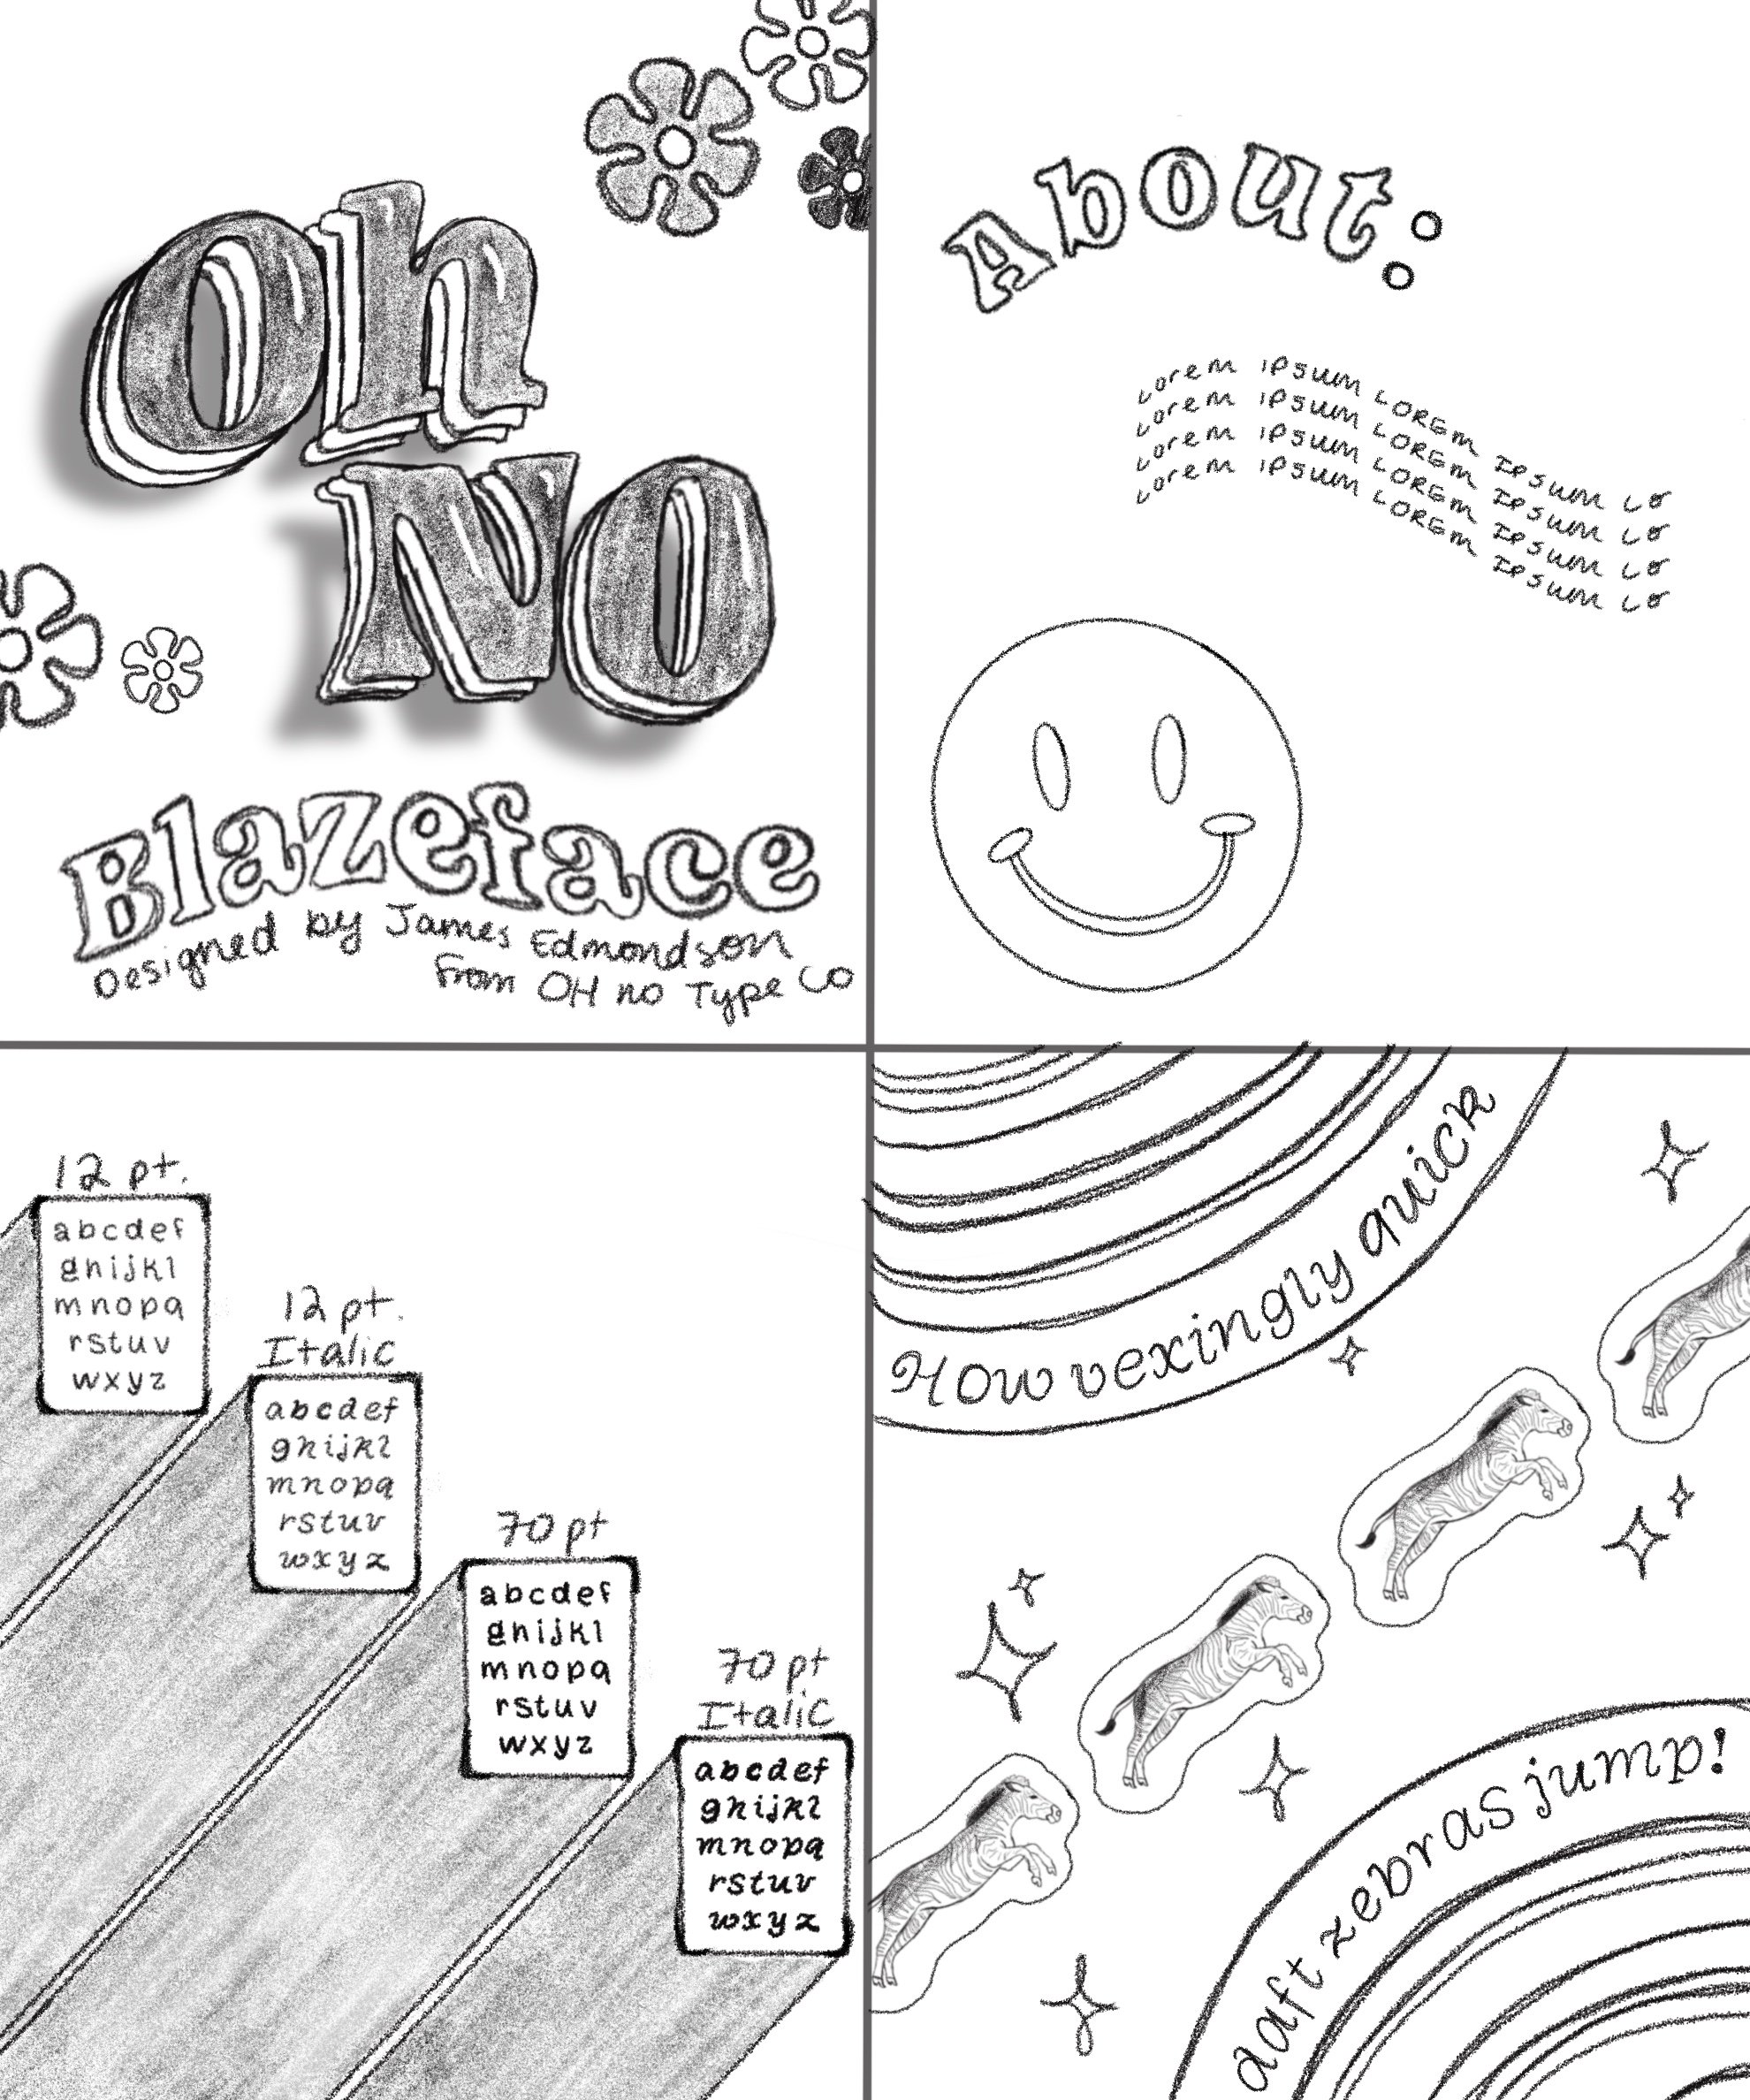 Oh
NO
Blazeface
Designed by James Edmondson
From OH no Type Co
About:
Lorem IPSum LOREm IPSum Lo
Lorem IPSum LOREm IPSum Lo
Lorem IPSum LOREm IPSum Lo
Lorem IPSum LOREm IPSum Lo
12 pt.
abcdef
ghijkl
mnopq
rstuv
wxyz
12 pt.
Italic
abcdef
ghijkl
mnopq
rstuv
wxyz
70 pt
abcdef
ghijkl
mnopq
rstuv
wxyz
70 pt
Italic
abcdef
ghijkl
mnopq
rstuv
wxyz
How vexingly quick
daft zebras jump!